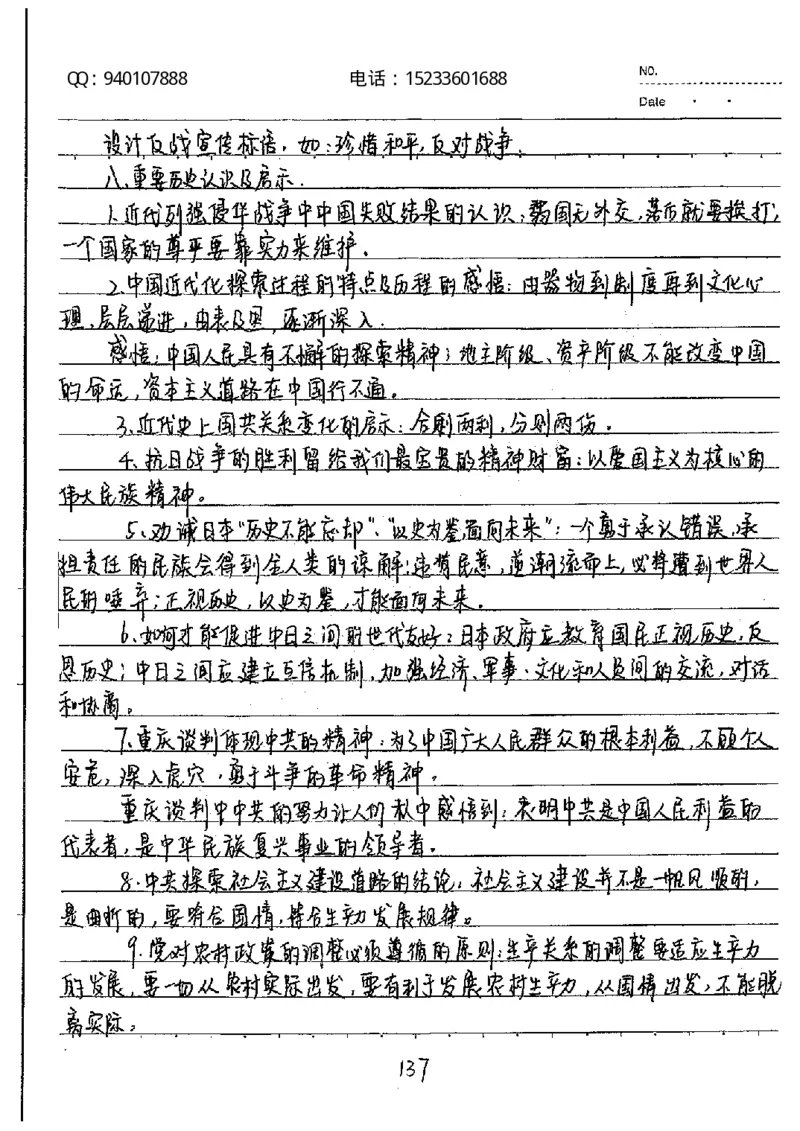 QQ：940107888
电话：15233601688
NO.
Date
设计反战宣传标语，如：珍惜和平，反对战争。
八、重要历史认识及启示.
1.近代列强侵华战争中中国失败结果的认识：弱国无外交，落后就要挨打，
一个国家的尊严要靠实力来维护。
2.中国近代化探索过程的特点及历程的感悟：由器物到制度再到文化心
理，层层递进，由表及里，逐渐深入.
感悟：中国人民具有不懈的探索精神；地主阶级、资产阶级不能改变中国
的命运，资本主义道路在中国行不通。
3.近代史上国共关系变化的启示：合则两利，分则两伤。
4.抗日战争的胜利留给我们最宝贵的精神财富：以爱国主义为核心的
伟大民族精神。
5、劝诫日本“历史不能忘却”、“以史为鉴，面向未来”：一个勇于承认错误，承
担责任的民族会得到全人类的谅解；违背民意，逆潮流而上，必将遭到世界人
民的唾弃；正视历史，以史为鉴，才能面向未来。
6、如何才能促进中日之间的世代友好：日本政府应教育国民正视历史，反
思历史；中日之间应建立互信机制，加强经济、军事、文化和人员间的交流，对话
和协商。
7、重庆谈判体现中共的精神：为了中国广大人民群众的根本利益，不顾个人
安危，深入虎穴，勇于斗争的革命精神。
重庆谈判中中共的努力让人们从中感悟到：表明中共是中国人民利益的
代表者，是中华民族复兴事业的领导者。
8.中共探索社会主义建设道路的结论：社会主义建设并不是一帆风顺的，
是曲折的，要符合国情，符合生产力发展规律。
9.党对农村政策的调整必须遵循的原则：生产关系的调整要适应生产力
的发展，要一切从农村实际出发，要有利于发展农村生产力，从国情出发，不能脱
离实际。
137